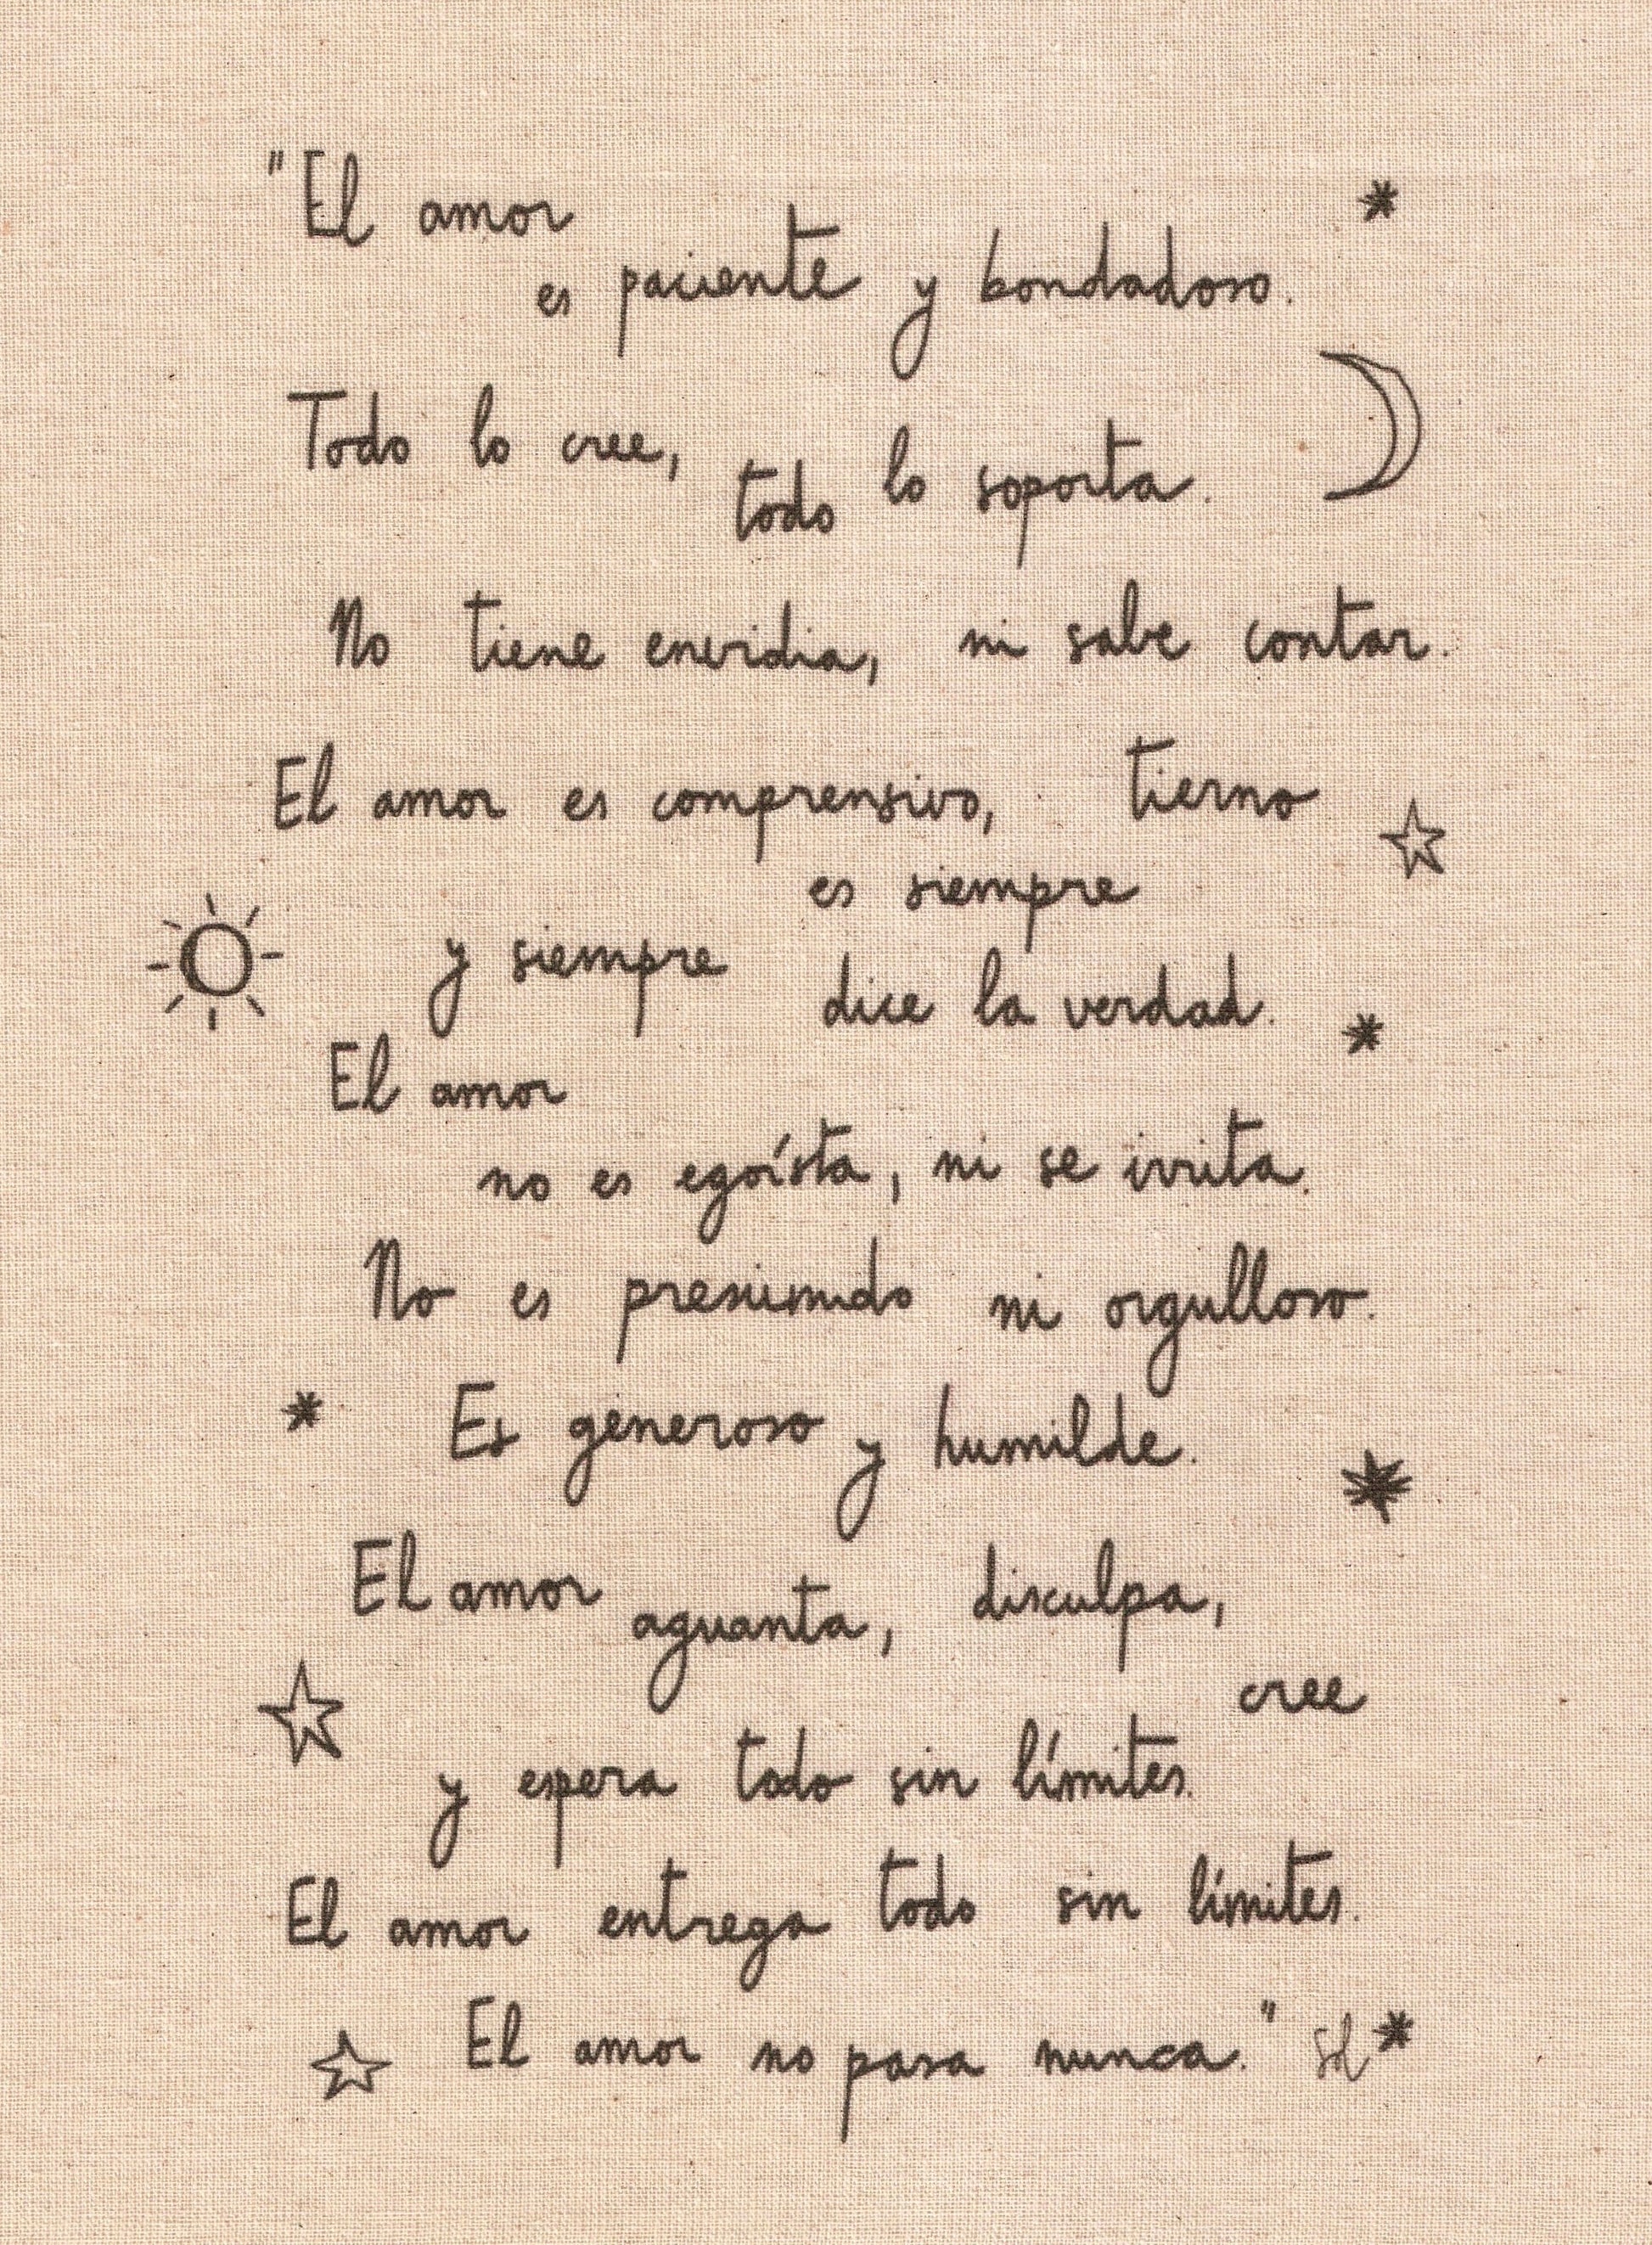 "El amor
es paciente y bondadoso.
Todo lo cree,
todo lo soporta.
No tiene envidia, ni sabe contar.
El amor es comprensivo, tierno
es siempre
y siempre
dice la verdad.
El amor
no es egoísta, ni se irrita.
No es presumido ni orgulloso.
Es generoso y humilde.
El amor
aguanta, disculpa,
cree
y espera todo sin límites.
El amor entrega todo sin límites.
El amor no pasa nunca."